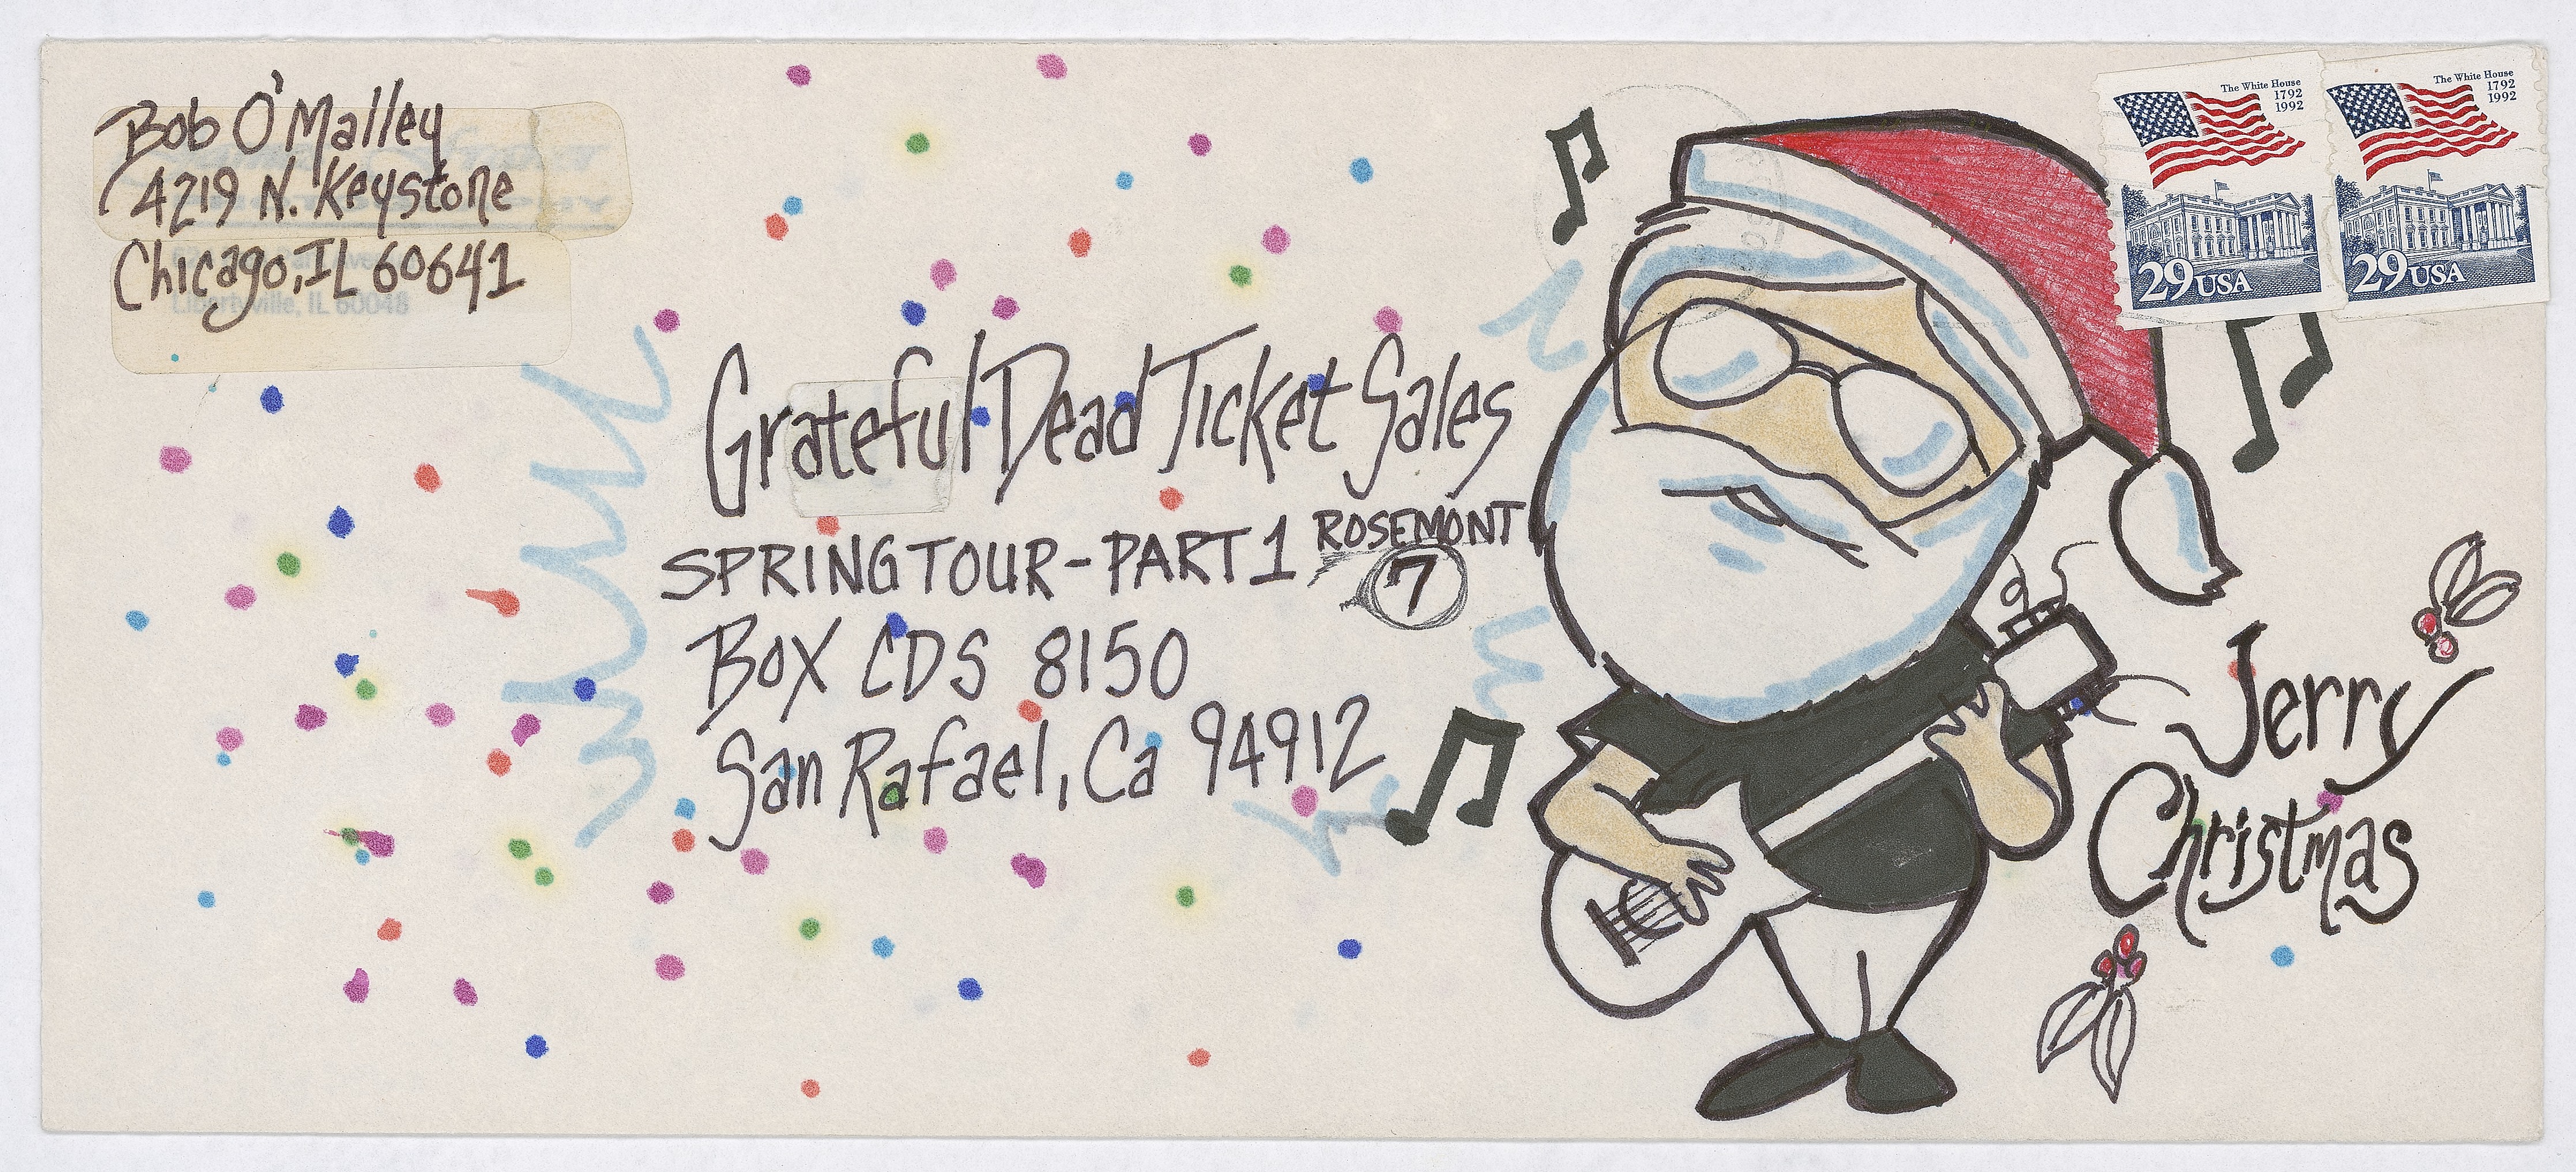 Bob O'Malley
4219 N. Keystone
Chicago, IL 60641
Libertyville, IL 60048
The White House
1792
1992
29 USA
The White House
1792
1992
29 USA
Grateful Dead Ticket Sales
SPRING TOUR - PART 1 ROSEMONT
7
BOX CDS 8150
San Rafael, Ca 94912
Jerry
Christmas